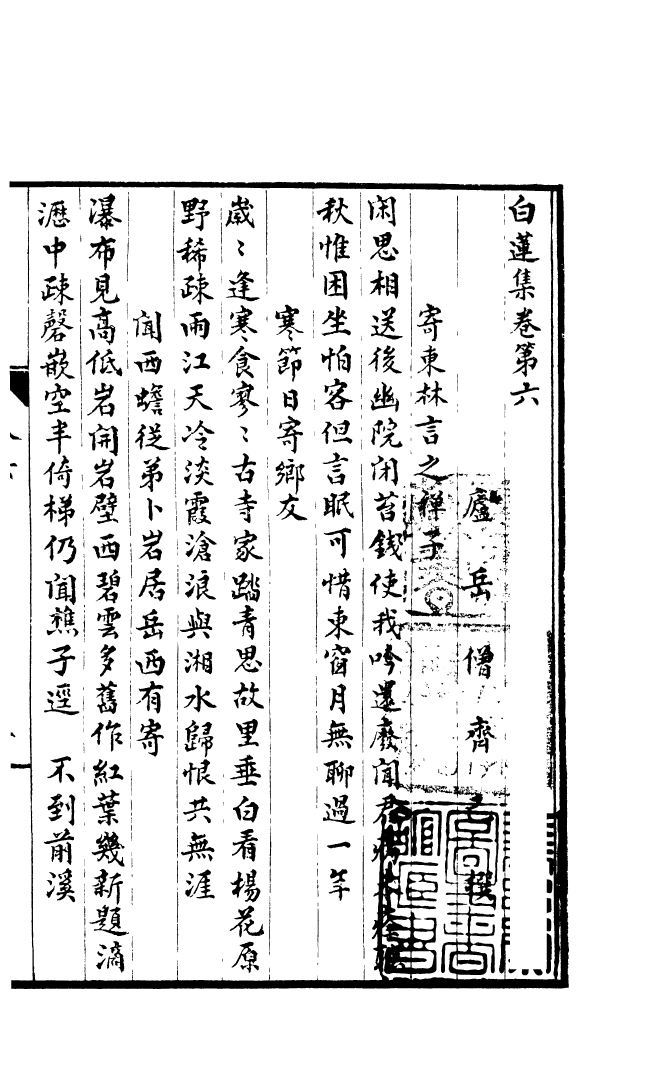 白蓮集卷第六
廬岳僧齊己撰
寄東林言之禪子
閑思相送後幽院閉苔錢使我吟還廢聞君病未痊
秋惟困坐怕客但言眠可惜東窗月無聊過一年
寒節日寄鄉友
歲〻逢寒食寥〻古寺家踏青思故里垂白看楊花原
野稀疎雨江天冷淡霞滄浪與湘水歸恨共無涯
聞西蟾從弟卜岩居岳西有寄
瀑布見高低岩開岩壁西碧雲多舊作紅葉幾新題滴
瀝中疎磬嵌空半倚梯仍聞樵子逕　不到前溪